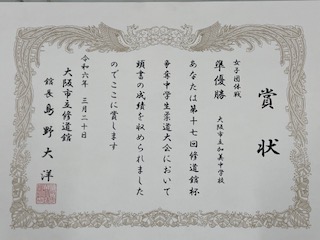 賞状
女子団体戦
準優勝
大阪市立加美中学校
あなたは第十七回修道館杯
争奪中学生柔道大会において
頭書の成績を収められました
のでここに賞します
令和六年 三月二十日
大阪市立修道館
館長 島野大洋